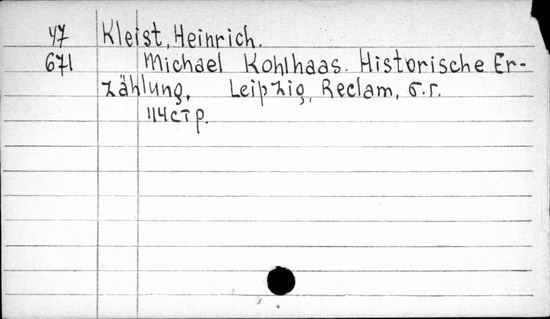 47 Kleist, Heinrich.
671 Michael Kohlhaas. Historische Er-
zählung, Leipzig, Reclam, б.г.
114 стр.